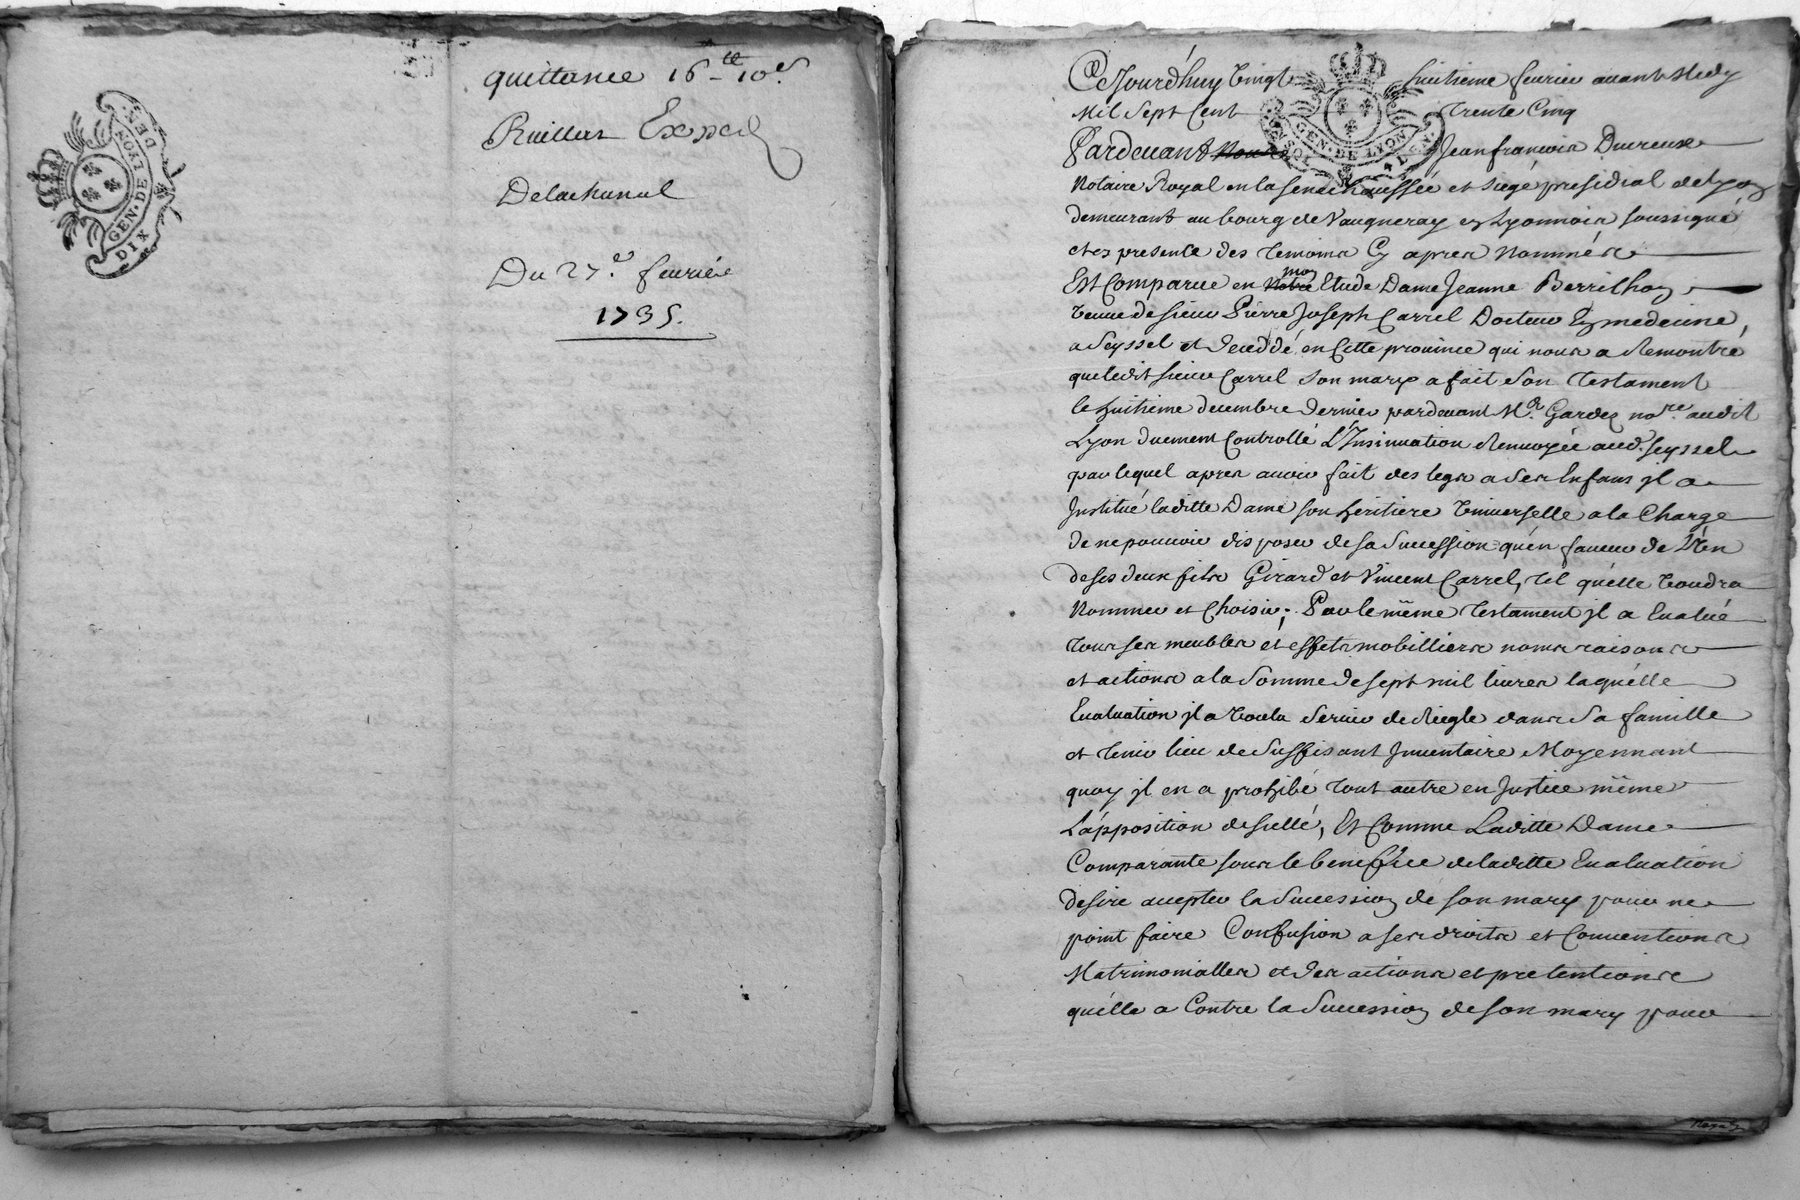 quittance 16 ₶ 10 s.
Ruillat Exped
Delachanal
Du 27e. fevrier
1735.
GEN. DE LYON
DIX DEN
Cejourd'huy vingt huitieme fevrier avant Midy
Mil Sept Cent trente Cinq
Pardevant Nous Jean françois Ducreux
Notaire Royal en la senechaussée et siege presidial de Lyon
demeurant au bourg de Vaugneray en Lyonnois soussigné
et es presence des temoins Cy apres Nommés
Est Comparue en Notre mon Etude Dame Jeanne Berrilhon
veuve de sieur Pierre Joseph Carrel Docteur En medecine,
a Seyssel et decedé en Cette province qui nous a Remontré
que ledit sieur Carrel son mary a fait son testament
le huitieme decembre dernier pardevant Mr. Gardes nore. audit
Lyon duement Controllé L'Insinuation Renvoyée aud. Seyssel
par lequel apres avoir fait des legs a ses Enfans jl a
Institué laditte Dame son heritiere Universelle a la Charge
de ne pouvoir disposer de sa Succession qu'en faveur de L'un
de ses deux fils Girard et Vincent Carrel, tel qu'elle voudra
Nommer et Choisir; Par le même testament jl a Evalué
tous ses meubles et effets mobilliers noms raisons
et actions a la Somme de sept mil livres laquelle
Evaluation jl a voulu Servir de Riegle dans Sa famille
et tenir lieu de Suffisant Inventaire Moyennant
quoy jl en a prohibé tout autre en Justice même
L'apposition de scellé, Et Comme Laditte Dame
Comparante sous le benefice de laditte Evaluation
desire accepter la Succession de son mary pour ne
point faire Confusion a ses droits et Conventions
Matrimonialles et des actions et pretentions
qu'elle a Contre la Succession de son mary pour
GEN. DE LYON